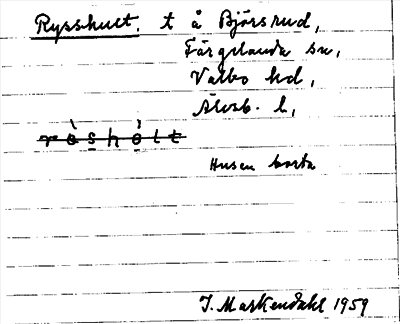 Rysshult. t å Björsrud,
Färgelanda sn,
Valbo hd,
Älvsb. l,
Husen borta
J. Markendahl 1959